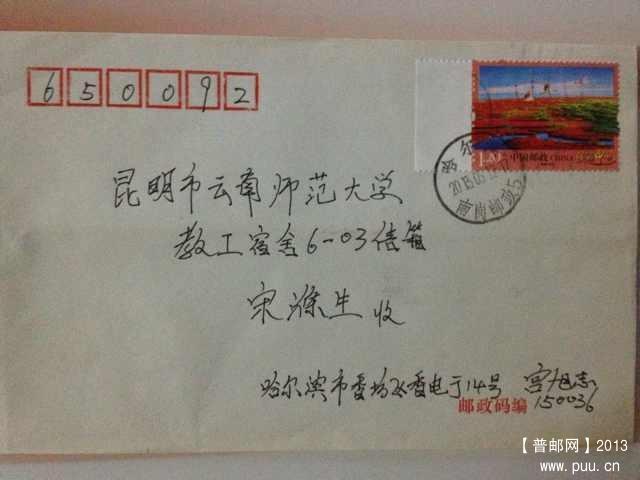 650092
1.20 中国邮政 CHINA
哈尔
2015.05
昆明市云南师范大学
教工宿舍6-03信箱
宋滌生 收
哈尔滨市香坊区香电厅14号 宫旭志
邮政码编 150036
【普邮网】2013
www.puu.cn